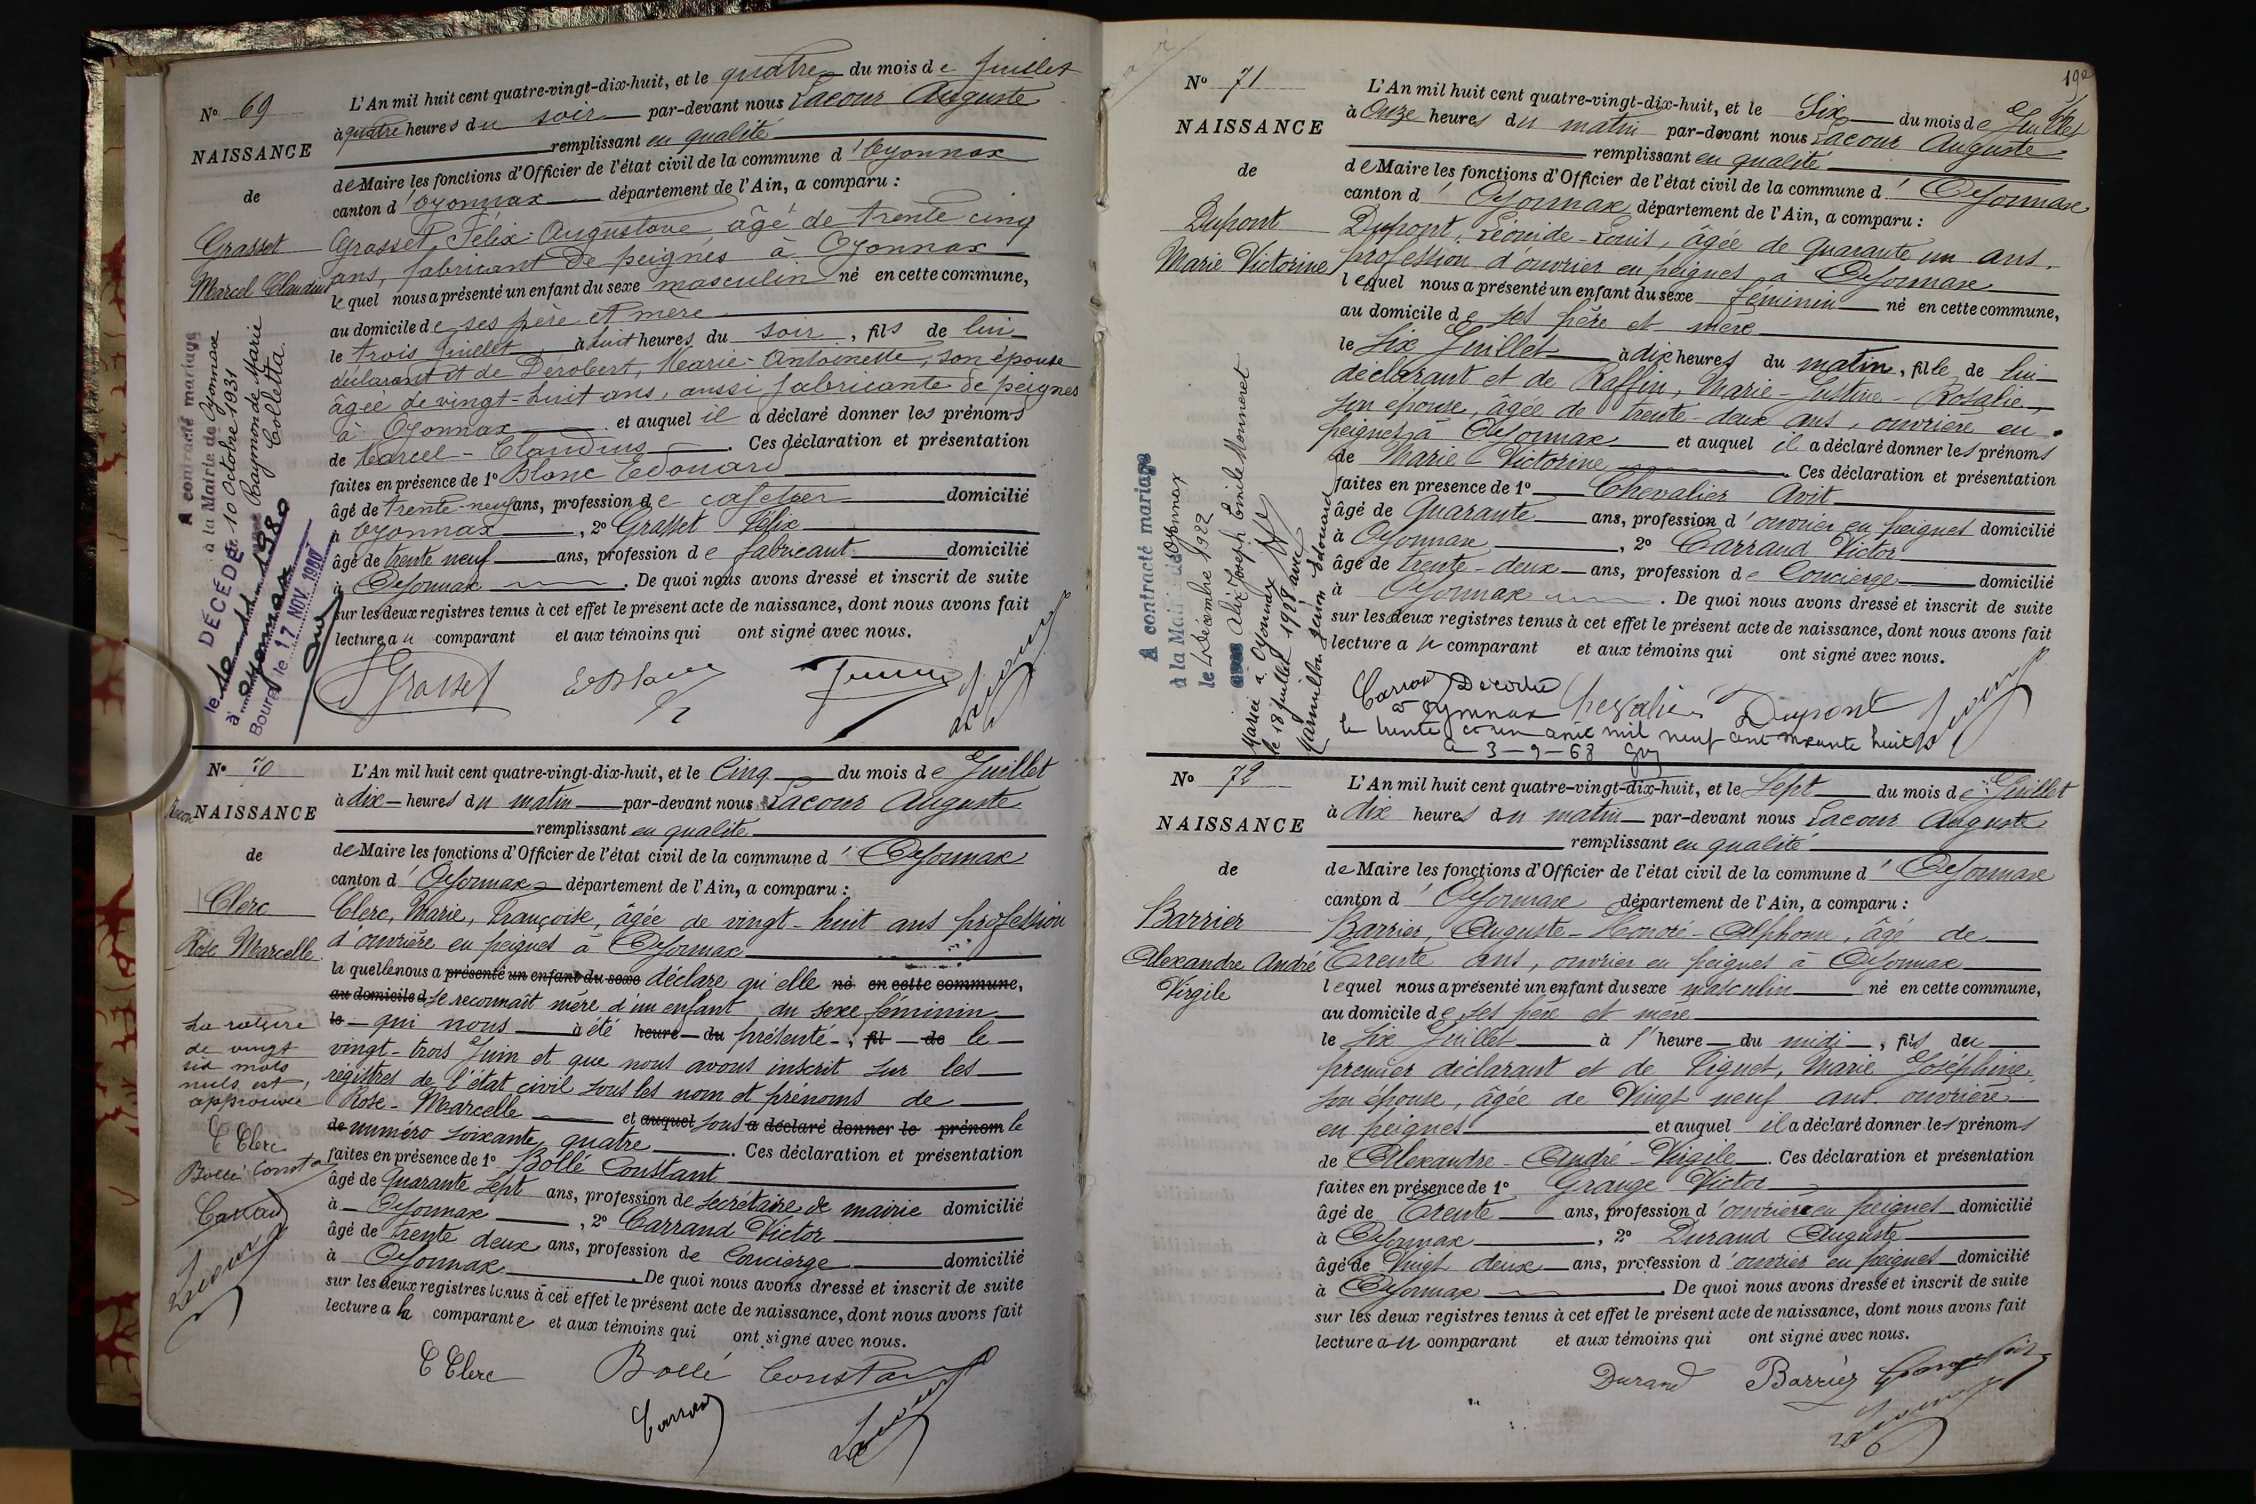 No 69
NAISSANCE
de
Grasset
Marcel Claudius
L'An mil huit cent quatre-vingt-dix-huit, et le quatre du mois de Juillet
à quatre heures du soir par-devant nous Lacour Auguste
remplissant en qualité
de Maire les fonctions d'Officier de l'état civil de la commune d'Oyonnax
canton d'Oyonnax département de l'Ain, a comparu :
Grasset, Félix-Augustave âgé de trente cinq
ans, fabricant de peignes à Oyonnax
lequel nous a présenté un enfant du sexe masculin né en cette commune,
au domicile de ses père et mère
le trois Juillet à huit heures du soir, fils de lui
déclarant et de Dérobert, Marie-Antoinette, son épouse
âgée de vingt-huit ans, aussi fabricante de peignes
à Oyonnax et auquel il a déclaré donner les prénoms
de Marcel-Claudius. Ces déclaration et présentation
faites en présence de 1o Blanc Edouard
âgé de trente-neuf ans, profession de cafetier domicilié
à Oyonnax, 2o Grasset Félix
âgé de trente neuf ans, profession de fabricant domicilié
à Oyonnax. De quoi nous avons dressé et inscrit de suite
sur les deux registres tenus à cet effet le présent acte de naissance, dont nous avons fait
lecture au comparant et aux témoins qui ont signé avec nous.
A contracté mariage
à la Mairie de Oyonnax
le 10 Octobre 1931
avec Raymonde Marie
Colletta.
DÉCÉDÉ
à Oyonnax
Bourg le 17 NOV. 1980
F Grasset
Lacour
No 70
NAISSANCE
de
Clerc
Rose Marcelle
L'An mil huit cent quatre-vingt-dix-huit, et le Cinq du mois de Juillet
à dix heures du matin par-devant nous Lacour Auguste
remplissant en qualité
de Maire les fonctions d'Officier de l'état civil de la commune d'Oyonnax
canton d'Oyonnax département de l'Ain, a comparu :
Clerc, Marie, Françoise, âgée de vingt-huit ans profession
d'ouvrière en peignes à Oyonnax
la quelle nous a présenté un enfant du sexe déclare qu'elle né en cette commune,
au domicile d se reconnaît mère d'un enfant, du sexe féminin
le qui nous a été heure du présenté, fil de le
vingt-trois Juin et que nous avons inscrit sur les
régistres de l'état civil sous les nom et prénoms de
Rose-Marcelle et auquel sous a déclaré donner le prénom le
de numéro soixante quatre. Ces déclaration et présentation
faites en présence de 1o Bollé Constant
âgé de Quarante sept ans, profession de secrétaire de mairie domicilié
à Oyonnax, 2o Carrand Victor
âgé de trente deux ans, profession de Concierge domicilié
à Oyonnax. De quoi nous avons dressé et inscrit de suite
sur les deux registres tenus à cet effet le présent acte de naissance, dont nous avons fait
lecture a la comparante et aux témoins qui ont signé avec nous.
La rature
de vingt
six mots
nuls est,
approuvée
C Clerc
Bollé Consta
Carrand
Lacour
C Clerc Bollé Constant
Carrand
Lacour
192
No 71
NAISSANCE
de
Dupont
Marie Victorine
L'An mil huit cent quatre-vingt-dix-huit, et le Six du mois de Juillet
à Onze heures du matin par-devant nous Lacour Auguste
remplissant en qualité
de Maire les fonctions d'Officier de l'état civil de la commune d'Oyonnax
canton d'Oyonnax département de l'Ain, a comparu :
Dupont, Léonide-Louis, âgée de Quarante un ans,
profession d'ouvrier en peignes à Oyonnax
lequel nous a présenté un enfant du sexe féminin né en cette commune,
au domicile de ses père et mère
le Six Juillet à dix heures du matin, fille de lui
déclarant et de Raffin, Marie-Justine-Rosalie,
son épouse, âgée de trente-deux ans, ouvrière en
peignes à Oyonnax et auquel il a déclaré donner les prénoms
de Marie Victorine. Ces déclaration et présentation
faites en présence de 1o Chevalier Avit
âgé de Quarante ans, profession d'ouvrier en peignes domicilié
à Oyonnax, 2o Carrand Victor
âgé de trente-deux ans, profession de Concierge domicilié
à Oyonnax. De quoi nous avons dressé et inscrit de suite
sur les deux registres tenus à cet effet le présent acte de naissance, dont nous avons fait
lecture au comparant et aux témoins qui ont signé avec nous.
A contracté mariage
à la Mairie d'Oyonnax
le 4 Décembre 1922
avec Alix Joseph Emile Monneret
Mariée à Oyonnax
le 18 juillet 1928 avec
Marmillon Edouard
Carrand Chevalier Dupont
Décédée
à Oyonnax
le trente et un août mil neuf cent soixante huit
a 3-9-68
Lacour
No 72
NAISSANCE
de
Barrier
Alexandre André
Virgile
L'An mil huit cent quatre-vingt-dix-huit, et le Sept du mois de Juillet
à dix heures du matin par-devant nous Lacour Auguste
remplissant en qualité
de Maire les fonctions d'Officier de l'état civil de la commune d'Oyonnax
canton d'Oyonnax département de l'Ain, a comparu :
Barrier, Auguste-Honoré-Alphonse, âgé de
Trente ans, ouvrier en peignes à Oyonnax
lequel nous a présenté un enfant du sexe masculin né en cette commune,
au domicile de ses père et mère
le Six Juillet à 1 heure du midi, fils du
premier déclarant et de Piguet, Marie Joséphine,
son épouse, âgée de Vingt neuf ans ouvrière
en peignes et auquel il a déclaré donner les prénoms
de Alexandre-André-Virgile. Ces déclaration et présentation
faites en présence de 1o Grange Victor
âgé de Trente ans, profession d'ouvrier en peignes domicilié
à Oyonnax, 2o Durand Auguste
âgé de Vingt deux ans, profession d'ouvrier en peignes domicilié
à Oyonnax. De quoi nous avons dressé et inscrit de suite
sur les deux registres tenus à cet effet le présent acte de naissance, dont nous avons fait
lecture au comparant et aux témoins qui ont signé avec nous.
Durand Barrier
Lacour